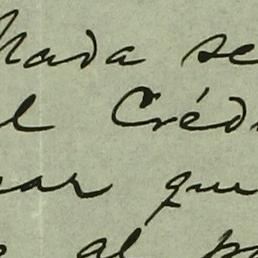 Nada se
el Créd
ar que
al p